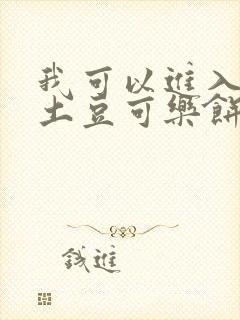 我可以進入
土豆可樂餅
錢進